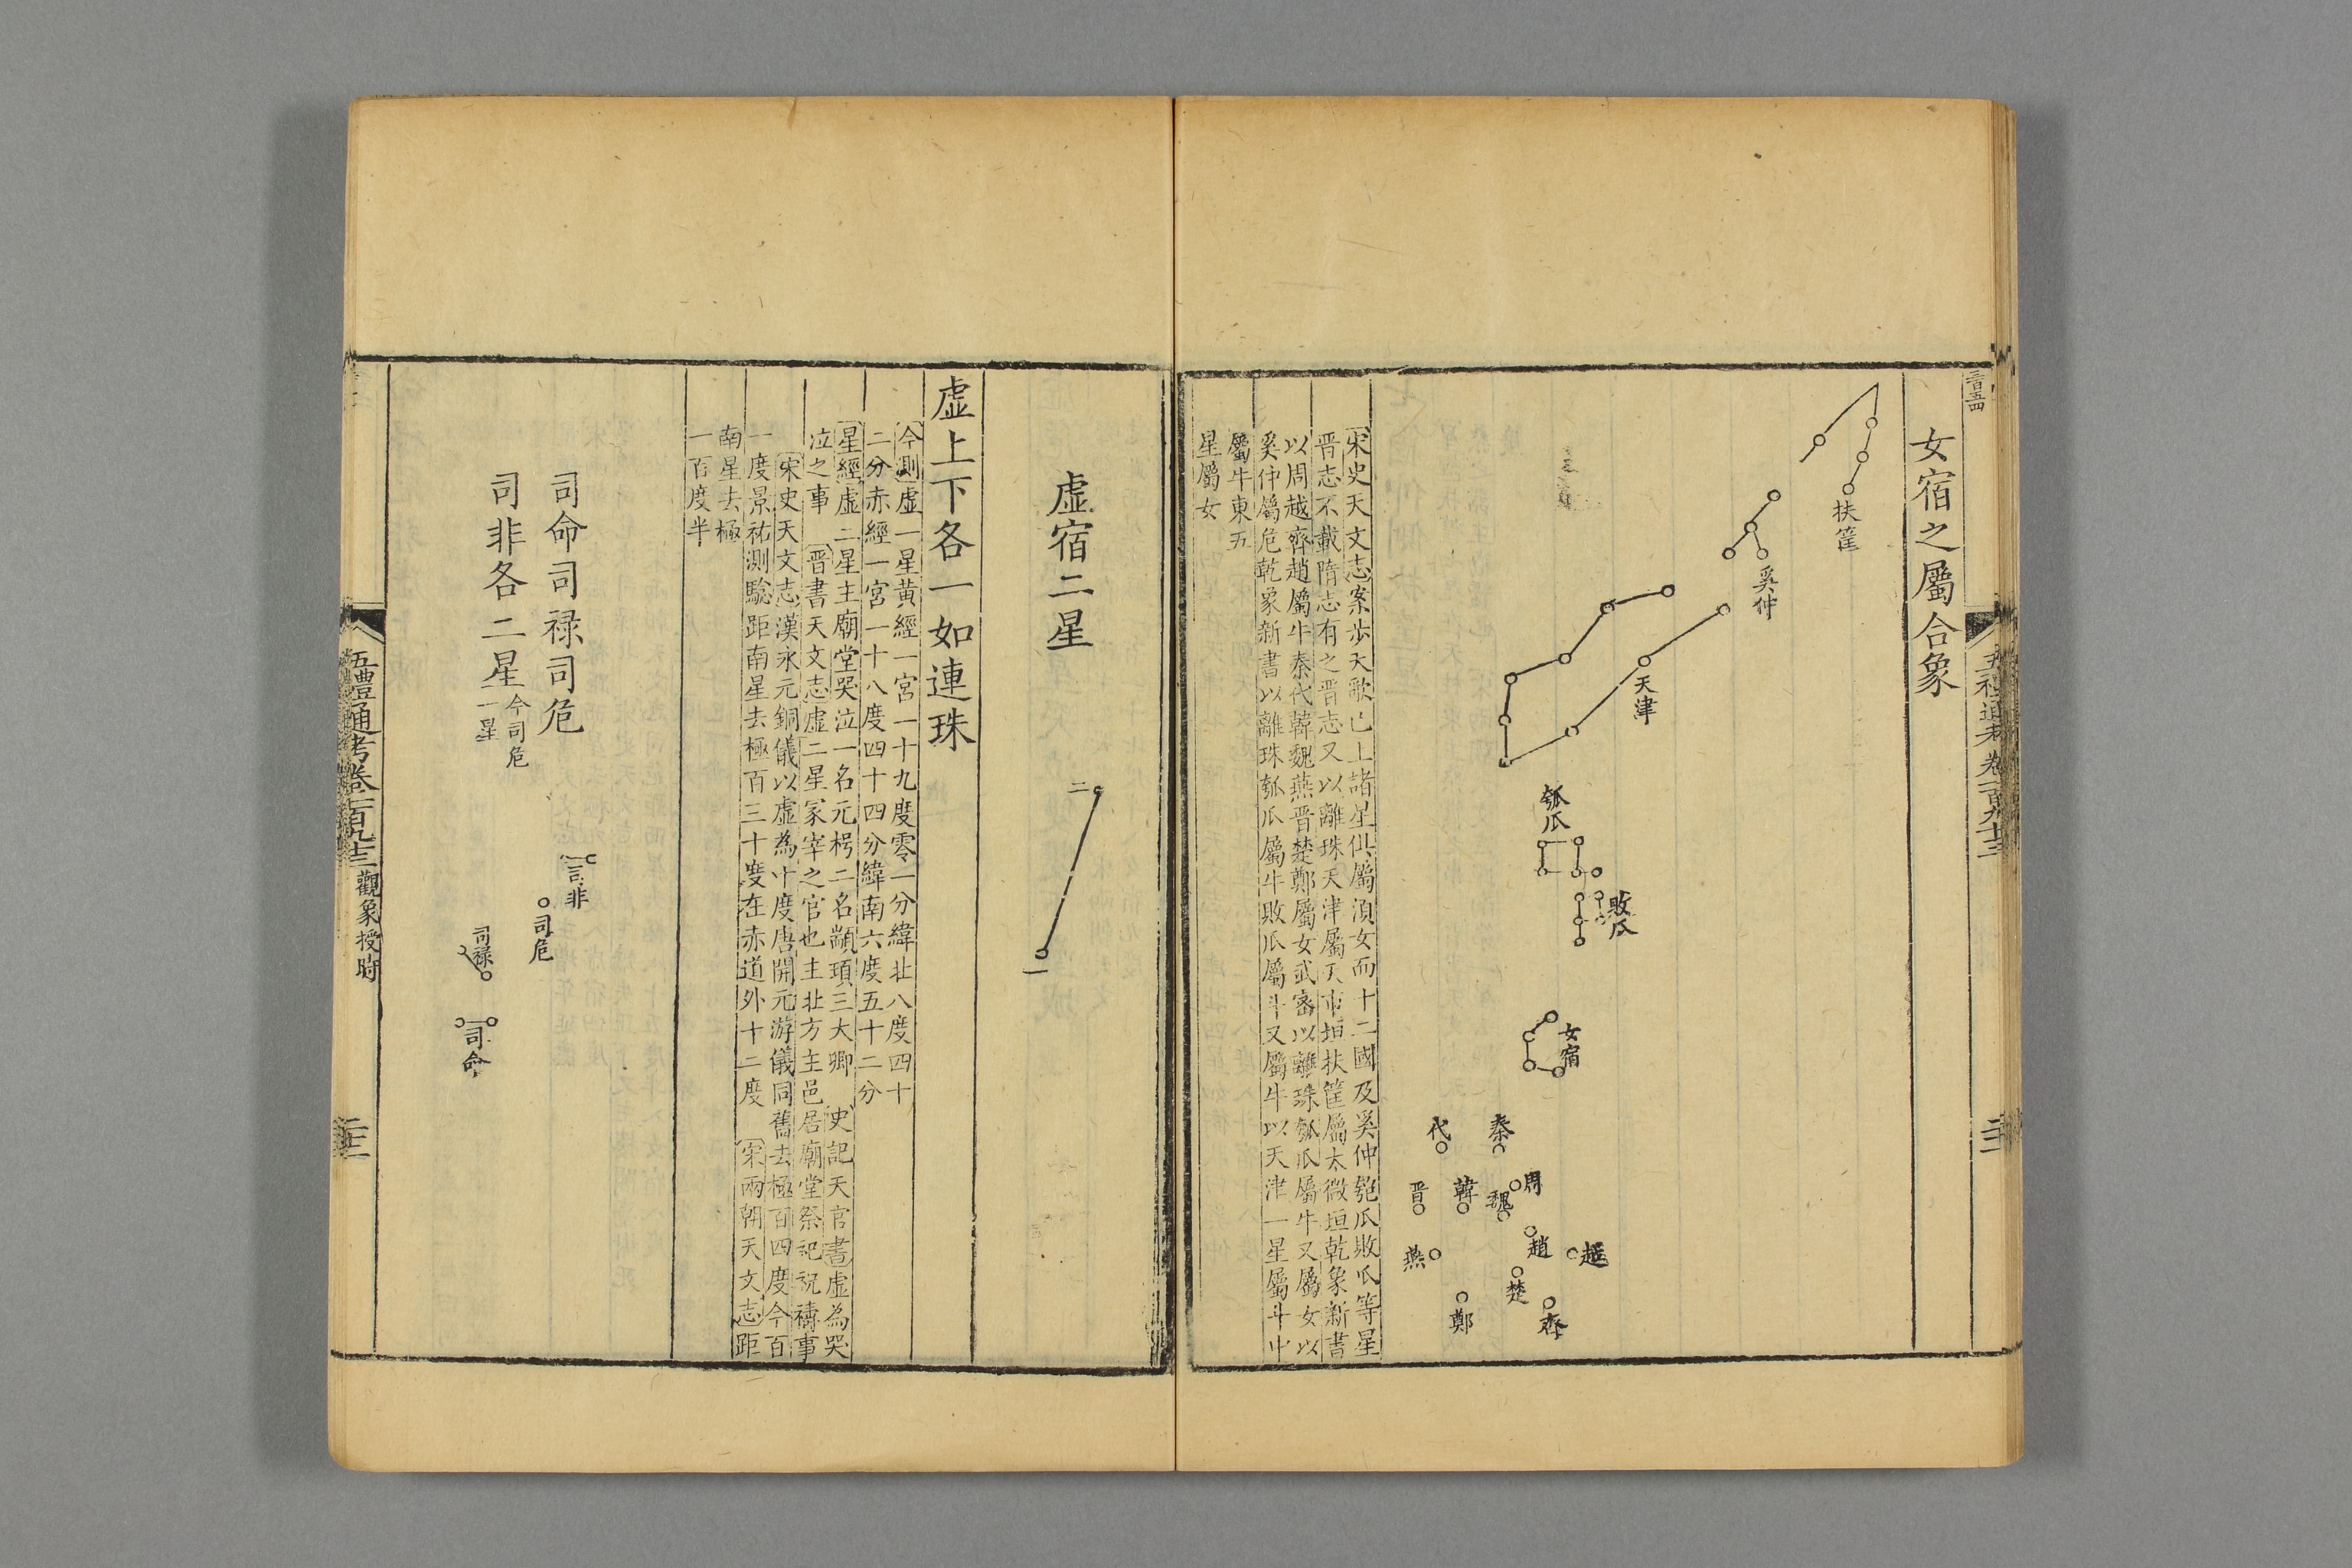 三百五四
女宿之屬合象
扶筐
奚仲
天津
瓠瓜
敗瓜
女宿
秦
代
周
韓
魏
晉
趙
越
燕
楚
齊
鄭
宋史天文志案步天歌已上諸星俱屬湏女而十二國及奚仲匏瓜敗瓜等星
晉志不載隋志有之晉志又以離珠天津屬天市垣扶筐屬太微垣乾象新書
以周越齊趙屬牛秦代韓魏燕晉楚鄭屬女武宻以離珠瓠瓜屬牛又屬女以
奚仲屬危乾象新書以離珠瓠瓜屬牛敗瓜屬斗又屬牛以天津一星屬斗中
屬牛東五
星屬女
虛宿二星
二
一
虛上下各一如連珠
今測虛一星黃經一宮一十九度零一分緯北八度四十
二分赤經一宮一十八度四十四分緯南六度五十二分
星經虛二星主廟堂哭泣一名元枵二名顓頊三大卿 史記天官書虛為哭
泣之事 晉書天文志虛二星冢宰之官也主北方主邑居廟堂祭祀祝禱事
宋史天文志漢永元銅儀以虛為十度唐開元游儀同舊去極百四度今百
一度景祐測驗距南星去極百三十度在赤道外十二度 宋兩朝天文志距
南星去極
一百度半
司命司祿司危
司非各二星今司危
一星
司非
司危
司祿
司命
五禮通考卷一百九十三 觀象授時